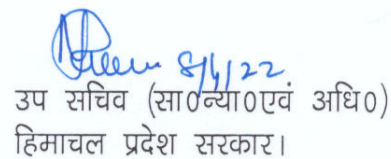 8/4/22
उप सचिव (सा०न्या०एवं अधि०)
हिमाचल प्रदेश सरकार।